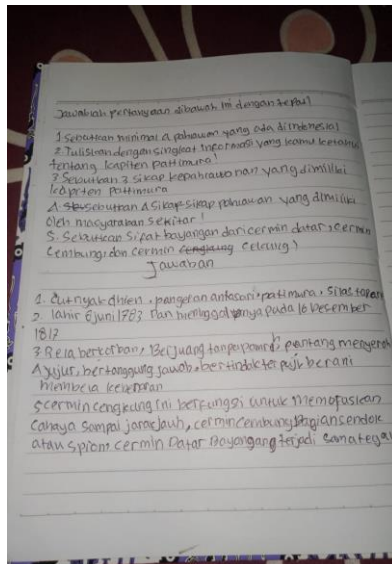 Jawablah pertanyaan dibawah ini dengan tepat!
1 Sebutkan minimal 4 pahlawan yang ada di indonesia!
2. Tuliskan dengan singkat informasi yang kamu ketahui
tentang kapiten pattimura!
3 Sebutkan 3 sikap kepahlawanan yang dimiliki
kapiten pattimura
4 Sebutkan 4 sikap-sikap pahlawan yang dimiliki
oleh masyarakan sekitar!
5. Sebutkan sifat bayangan dari cermin datar, cermin
cembung, dan cermin cekung!
Jawaban
1. Cut nyak dhien, pangeran antasari, patimura, silas papare
2. lahir 6 juni 1783 dan meninggalnya pada 16 Desember
1817
3 Rela berkorban, Berjuang tanpa pamrih, pantang menyerah
4 Jujur, bertanggung jawab, bertindak terpuji berani
membela kebenaran
5 cermin cengkung ini berfungsi untuk memofuskan
cahaya sampai jarak jauh, cermin cembung Bagian sendok
atau spion, cermin Datar Bayangang terjadi sama tegak